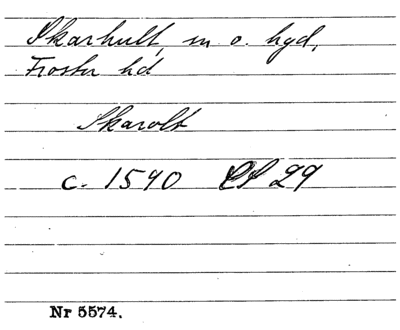 Skarhult, sn o. hgd,
Frosta hd
Skarolt
c. 1590 CS 29
Nr 5574.